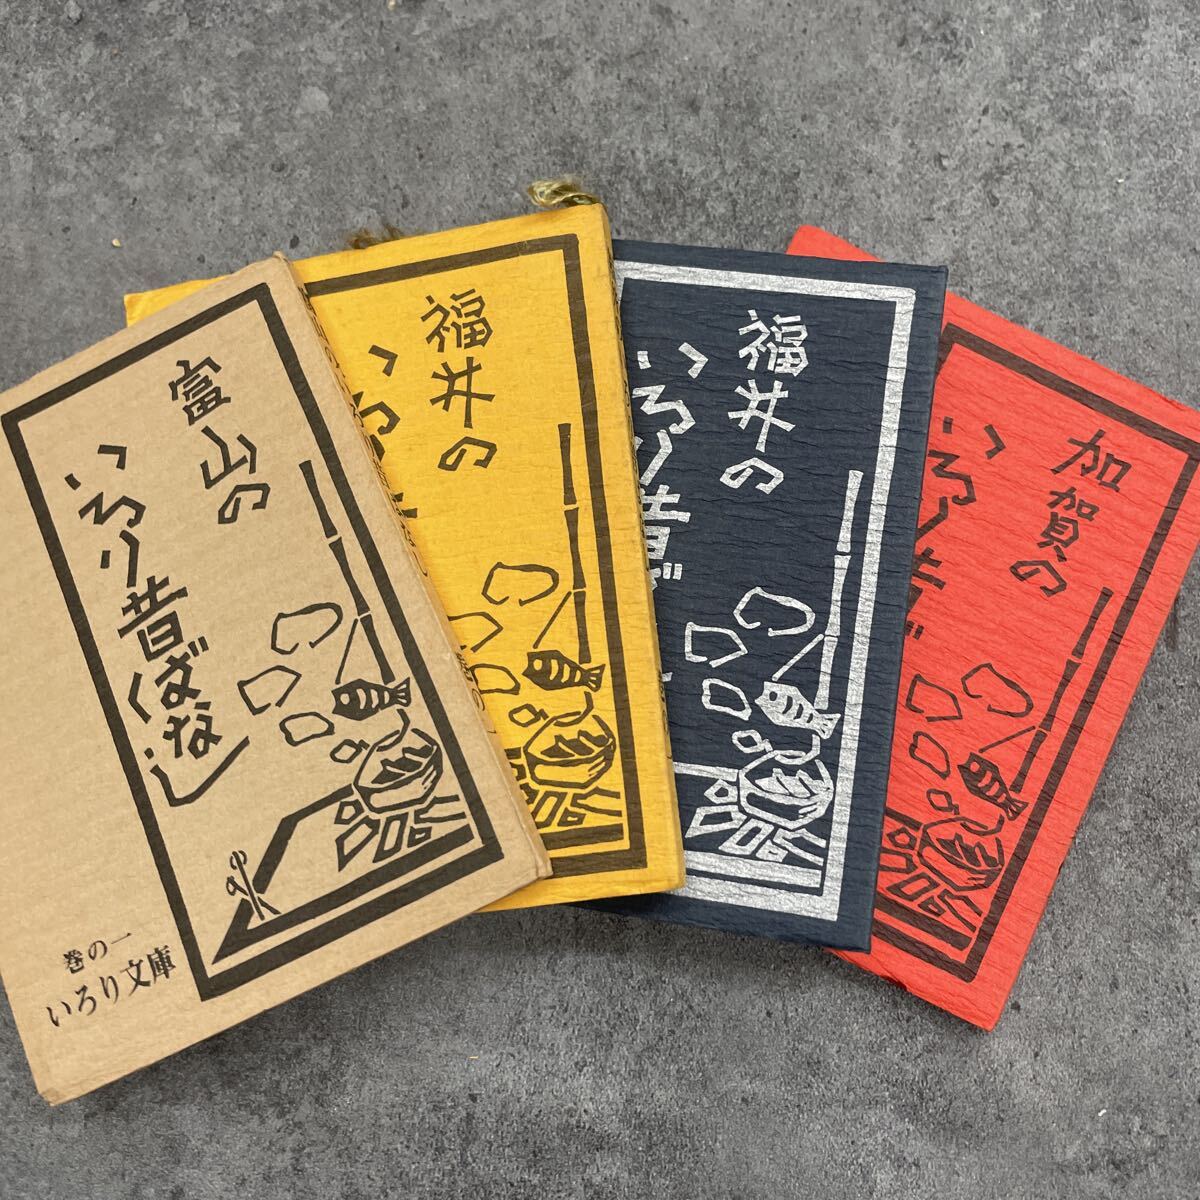 富山の
いろり昔ばなし
巻の一
いろり文庫
福井の
いろり
福井の
いろり昔ば
加賀の
いろり昔ば